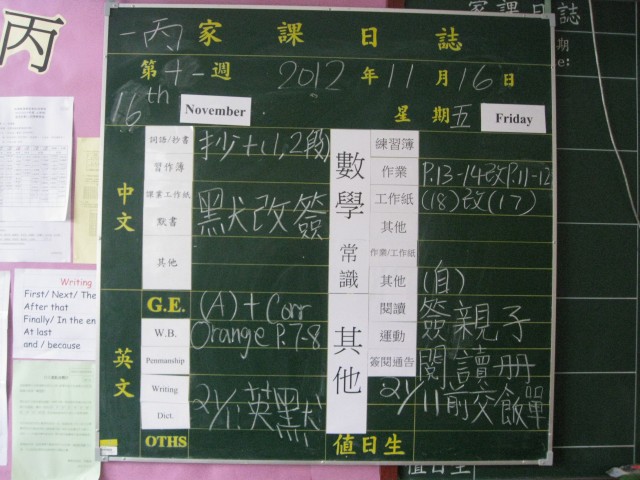 丙
一丙 家課日誌
第十一週 2012年11月16日
16th November 星期五 Friday
中文
詞語/抄書 抄十(1,2段)
習作簿
課業工作紙
默書 默改簽
其他
英文
G.E. (A) + Corr
W.B. Orange P.7-8
Penmanship
Writing
Dict. 21/11英默
OTHS
數學
練習簿
作業 P.13-14改P.11-12
工作紙 (18)改(17)
其他
常識
作業/工作紙
其他 (自)
其他
閱讀 簽親子
運動 閱讀册
簽閱通告 21/11前交飯單
值日生
家課日誌
期
e:
值日生
Writing
First/ Next/ The
After that
Finally/ In the en
At last
and / because